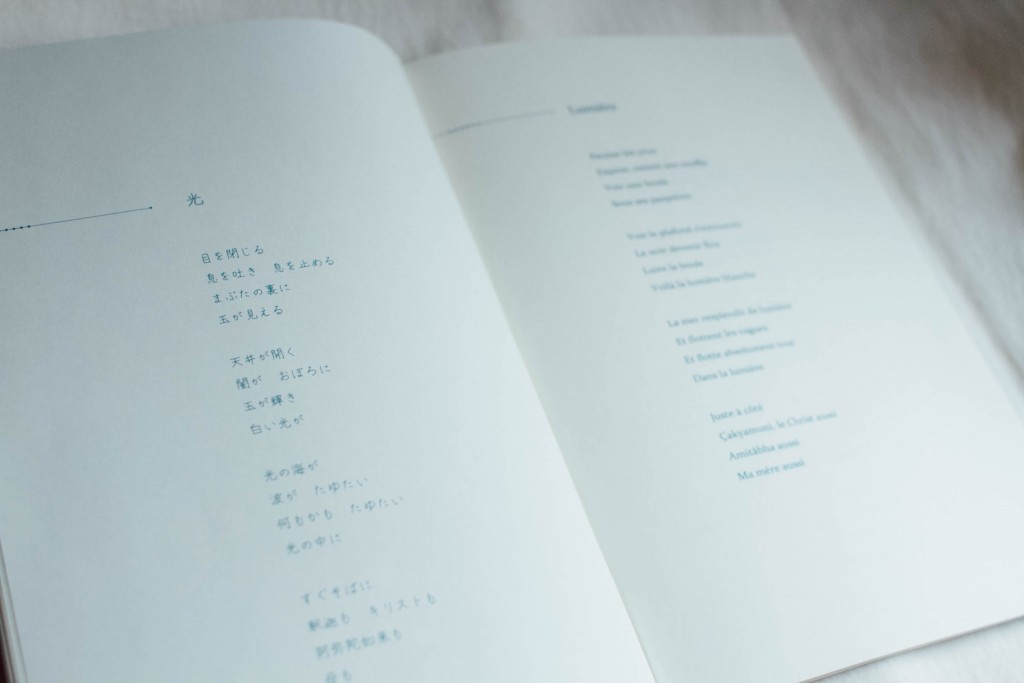 光
目を閉じる
息を吐き　息を止める
まぶたの裏に
玉が見える
天井が開く
闇が　おぼろに
玉が輝き
白い光が
光の海が
波が　たゆたい
何もかも　たゆたい
光の中に
すぐそばに
釈迦も　キリストも
阿弥陀如来も
母も
Lumière
Fermer les yeux
Expirer, retenir son souffle
Voir une boule
Sous ses paupières
Voir le plafond
La nuit devenir flou
Luire la boule
Voilà la lumière blanche
La mer resplendit de lumière
Et flottent les vagues
Et flotte absolument tout
Dans la lumière
Juste à côté
Çakyamuni, le Christ aussi
Amitâbha aussi
Ma mère aussi